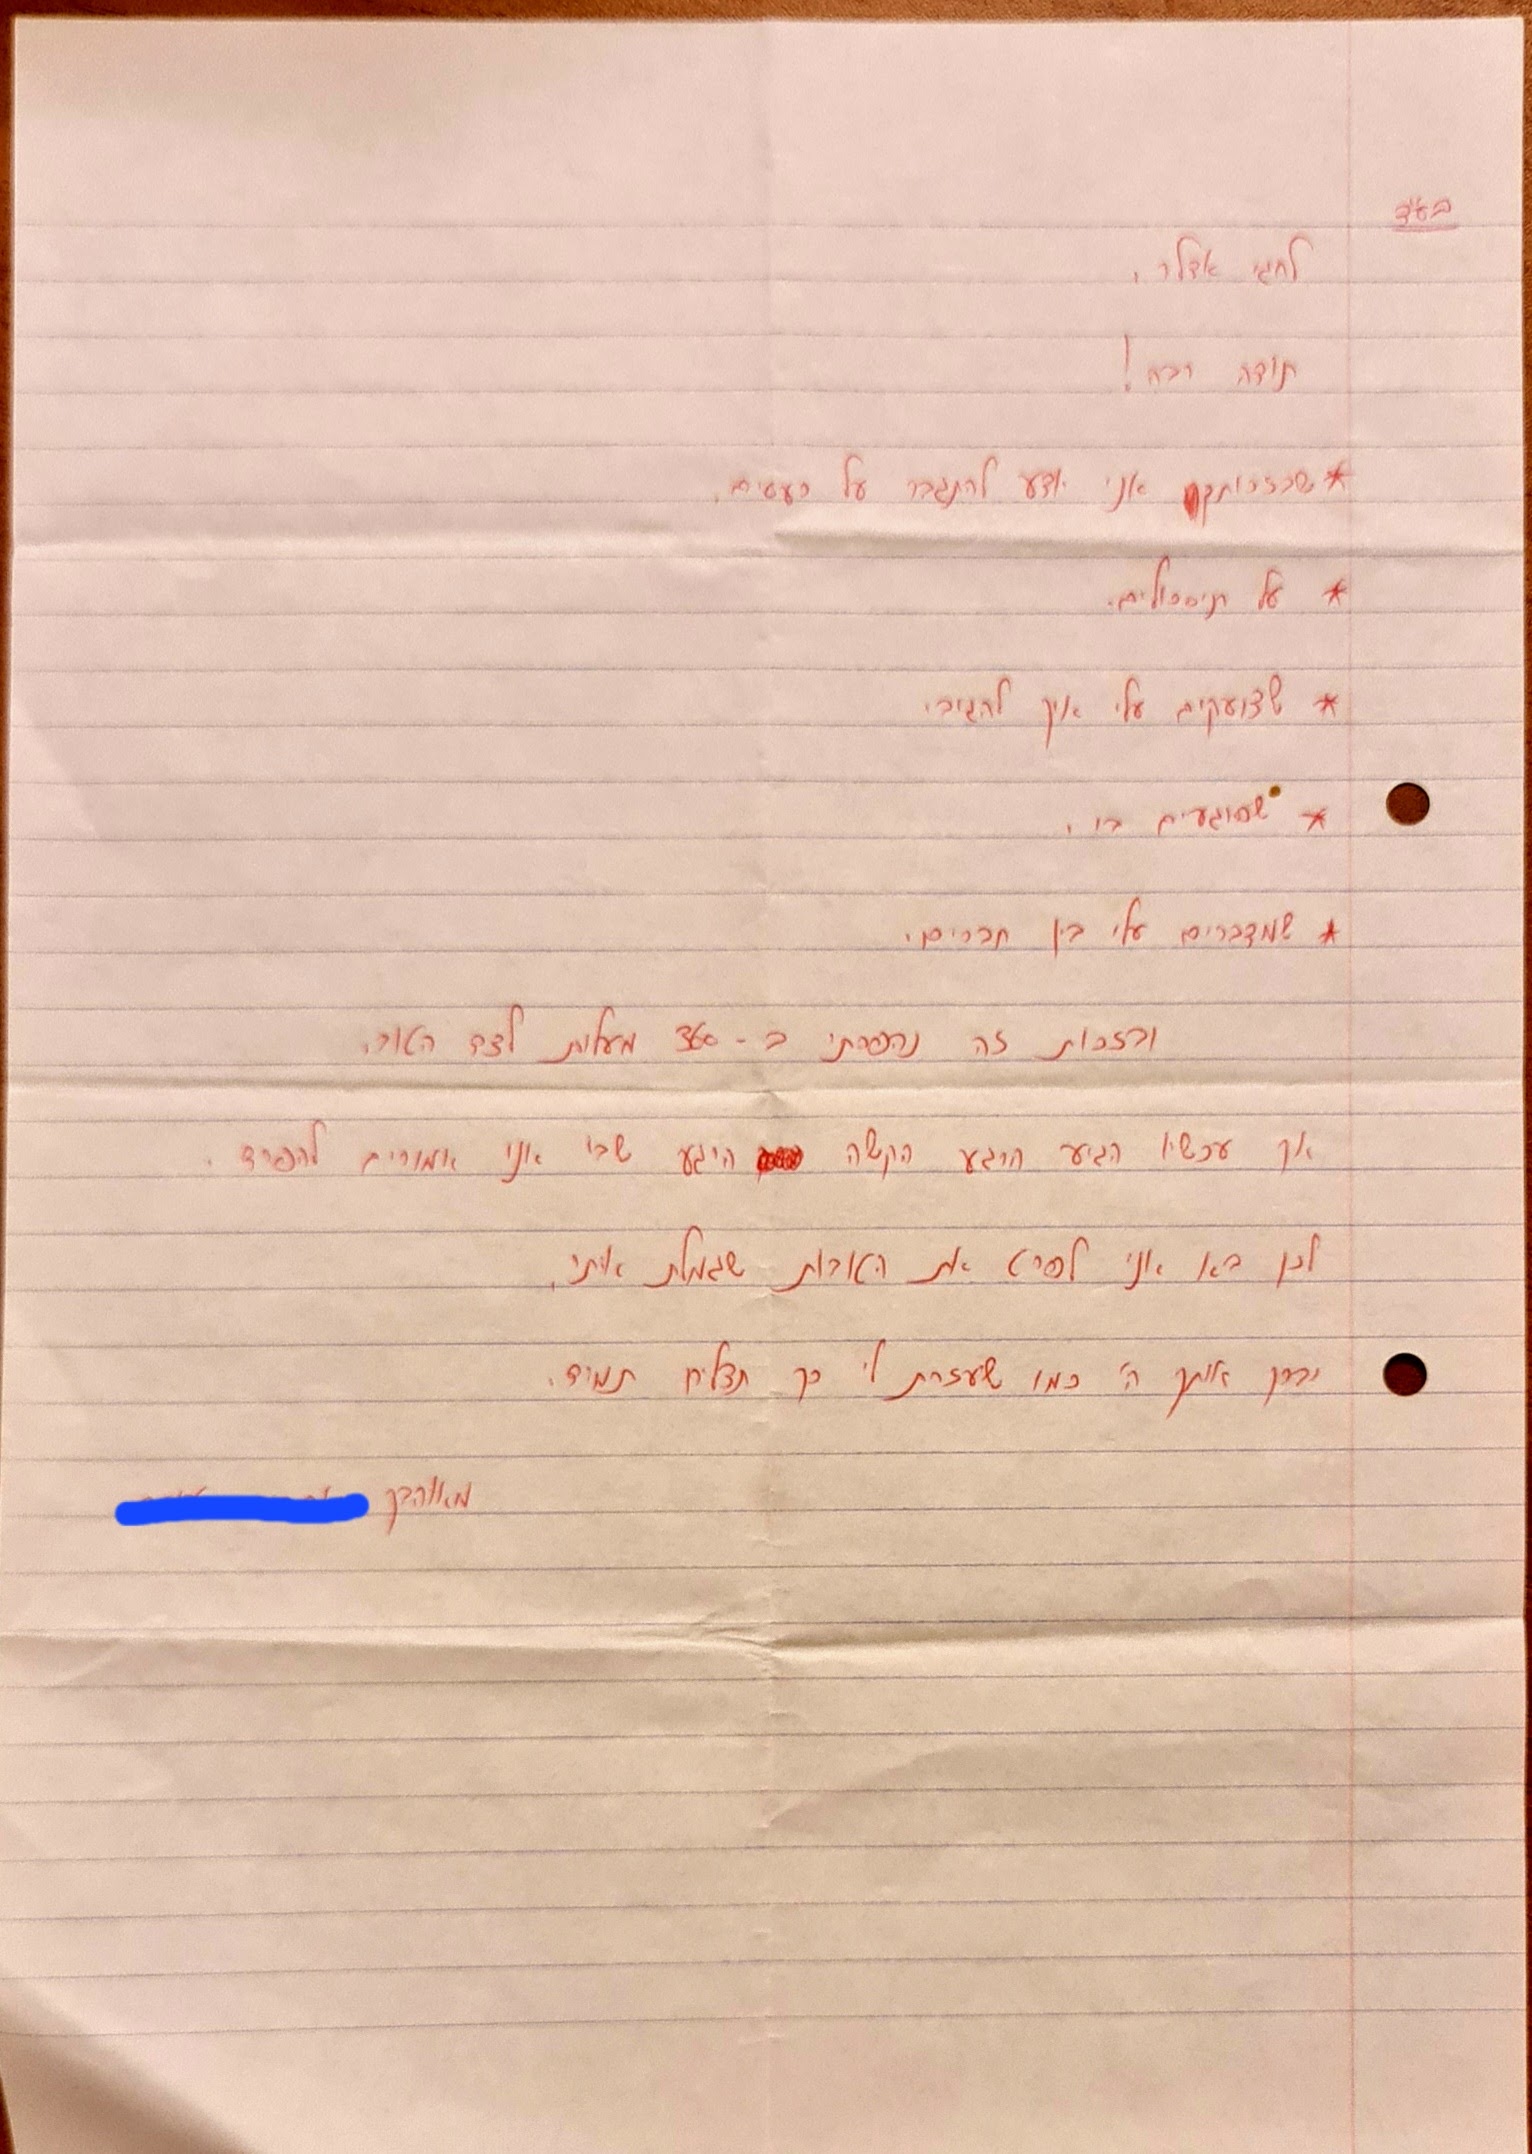 בס"ד
לחגי אדלר,
תודה רבה!
* שבזכותך אני יודע להתגבר על כעסים.
* על תיסכולים.
* שצועקים עלי איך להגיב.
* שפוגעים בי.
* שמדברים עלי בין חברים.
ובזכות זה נהפכתי ב-360 מעלות לצד הטוב.
אך עכשיו הגיע הרגע הקשה היגע שבו אני אמורים להפרד.
לכן באו אני לפרט את הטובות שגמלת איתי.
יברך אותך ה' כמו שעזרת לי כך תצליח תמיד.
מאוהבך